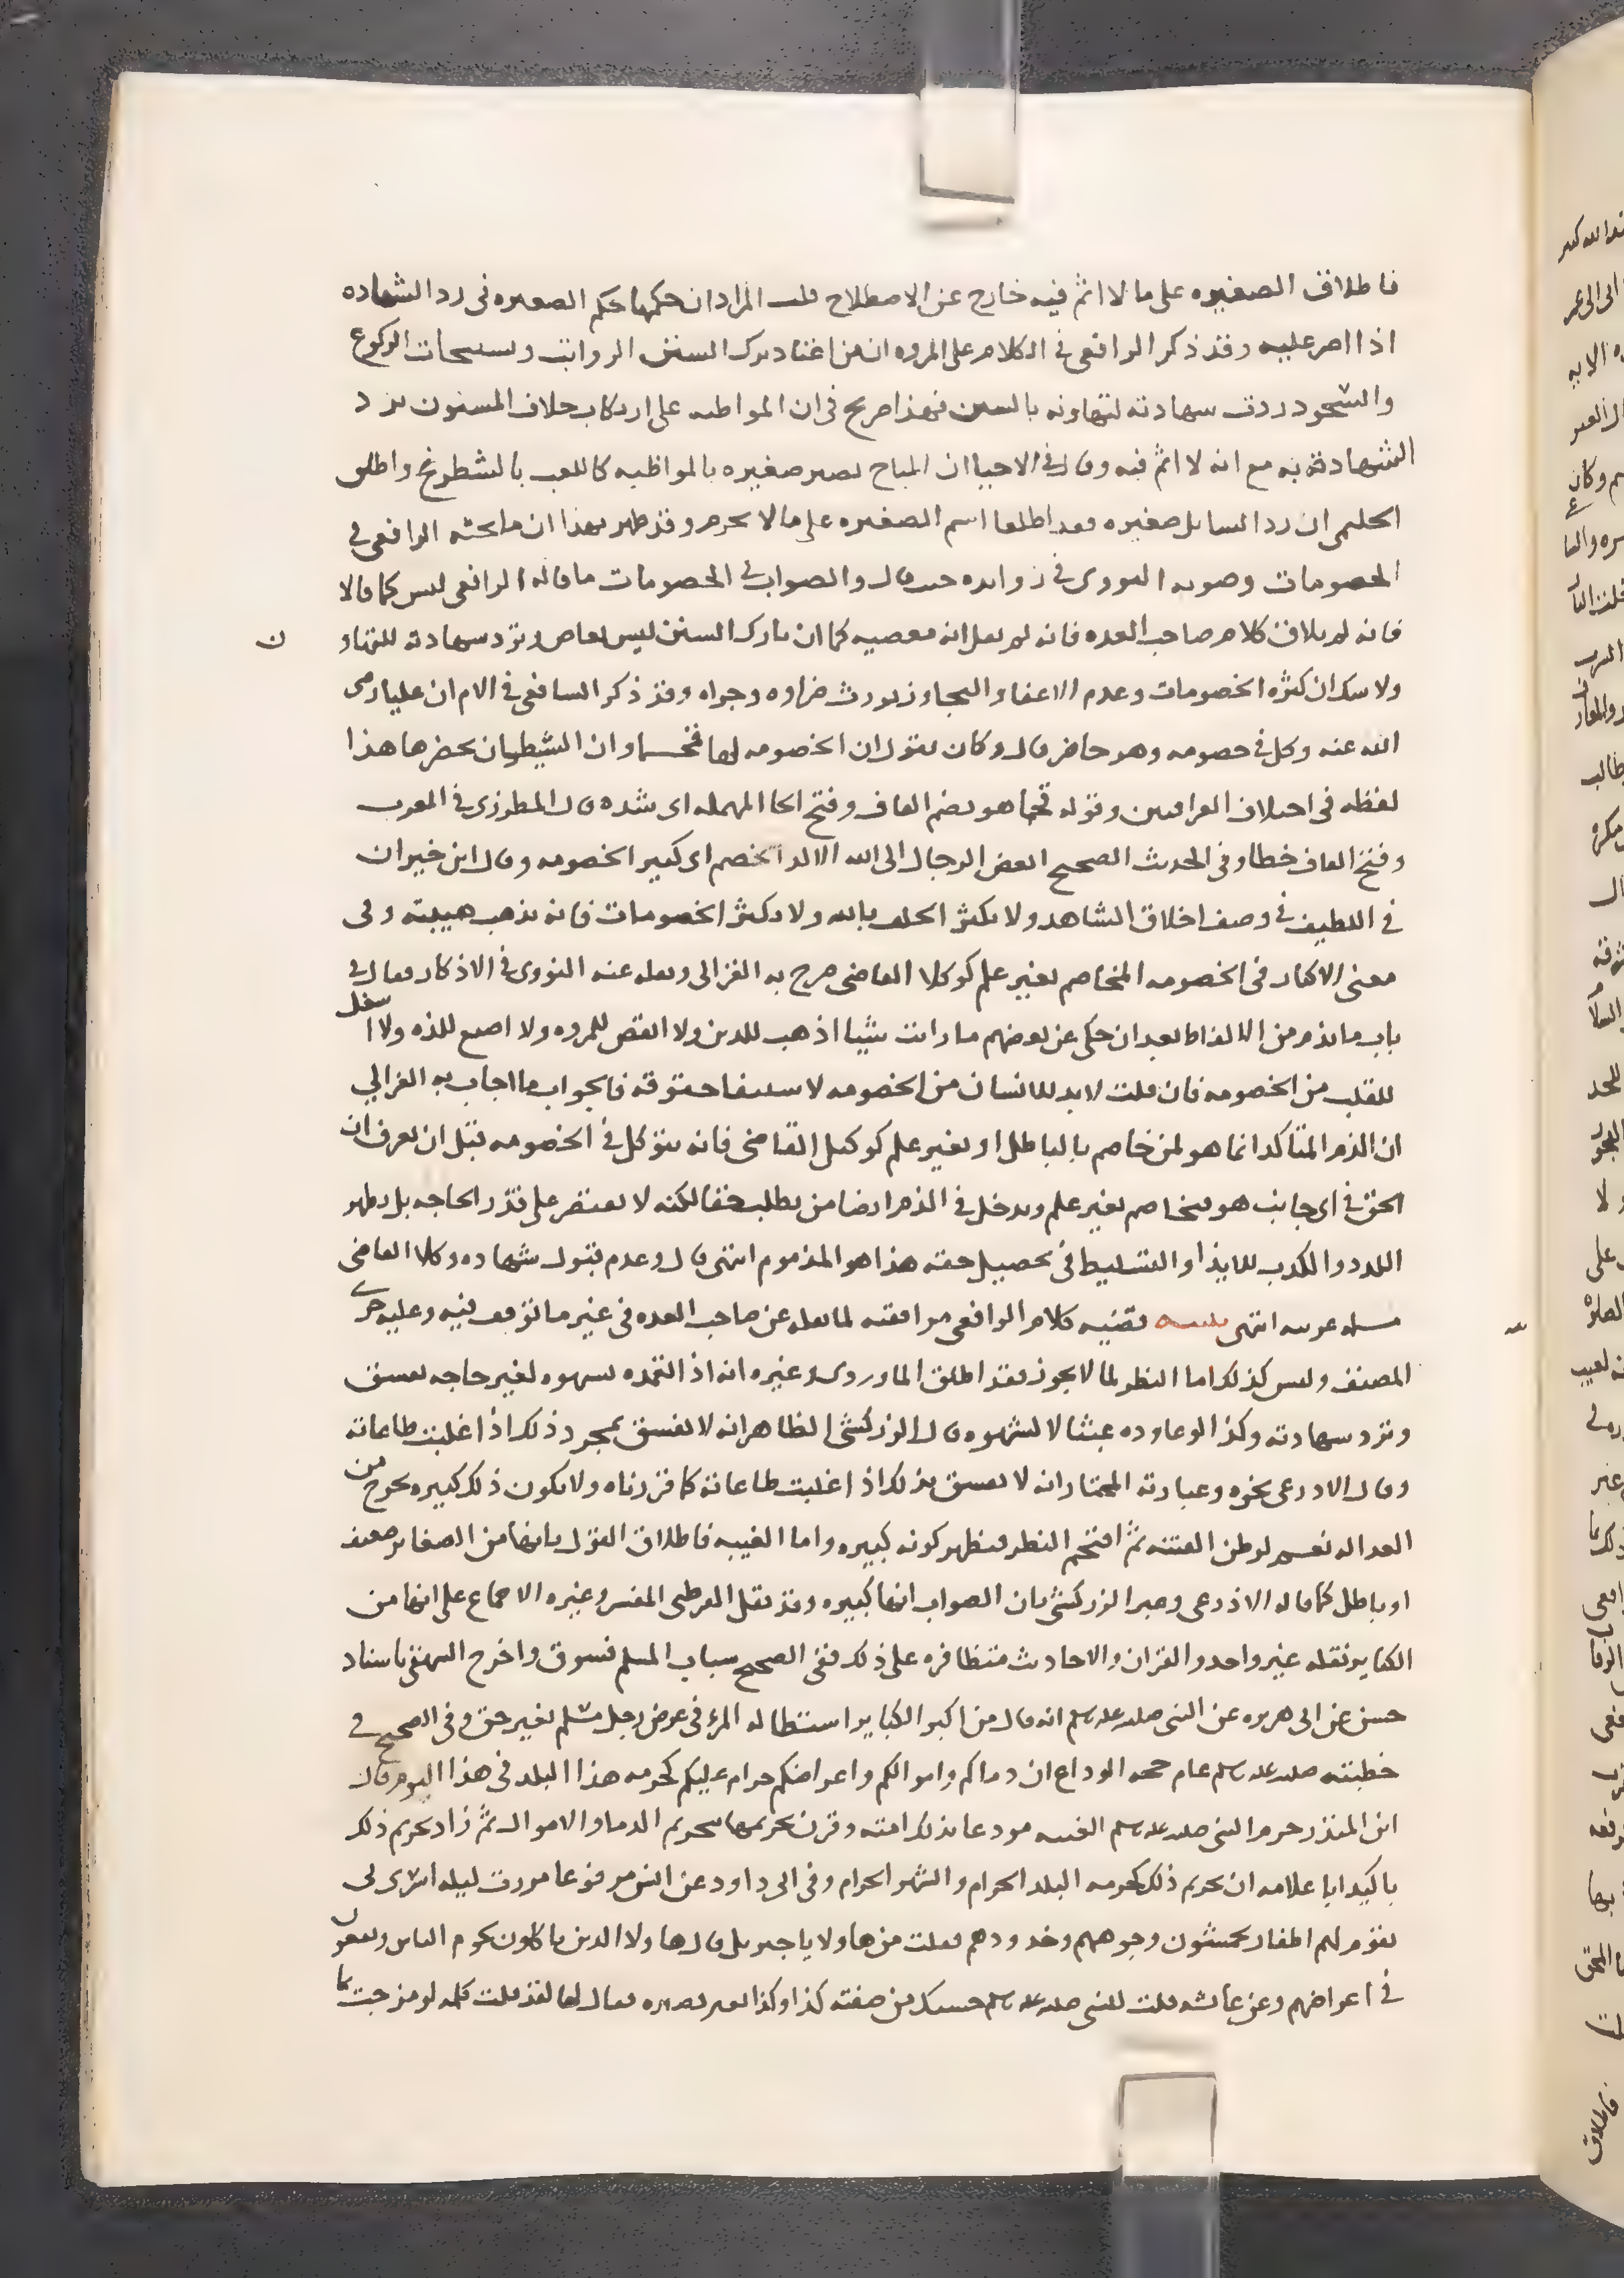 فاطلاق الصغيره على ما لا اثم فيه خارج عن الاصطلاح قلت المراد ان حكمها حكم الصغيره في رد الشهاده
اذا اصر عليه وقد ذكر الرافعى في الكلام على المروه ان من اعتاد ترك السنن الرواتب وتسبيحات الركوع
والسجود ردت شهادته لتهاونه بالسنن فهذا صريح في ان المواظبه على ارتكاب خلاف المسنون ترد
الشهادة به مع انه لا اثم فيه وقال في الاحيا ان المباح يصير صغيره بالمواظبه كاللعب بالشطرنج واطلق
الحليمى ان رد السايل صغيره فقد اطلقا اسم الصغيره على ما لا يحرم وقد ظهر بهذا ان ما بحثه الرافعى في
الخصومات وصوبه النووى في زوايده حيث قال والصواب في الخصومات ما قاله الرافعى ليس كما قالا
فانه لم يلاق كلام صاحب العده فانه لم يقل انه معصيه كما ان تارك السنن ليس بعاص وترد شهادته للتهاو
ن
ولا شك ان كثره الخصومات وعدم الاغضا والتجاوز يورث ضراوه وجراه وقد ذكر الشافعى في الام ان عليا رضى
الله عنه وكل في خصومه وهو حاضر قال وكان يقول ان الخصومه لها قحما وان الشيطان يحضرها هذا
لفظه في اختلاف العراقيين وقوله قحما هو بضم القاف وفتح الحا المهمله اى شده قال المطرزى في المغرب
وفتح القاف خطا وفي الحديث الصحيح ابغض الرجال الى الله الالد الخصم اى كثير الخصومه وقال ابن خيران
في اللطيف في وصف اخلاق الشاهد ولا يكثر الحلف بالله ولا يكثر الخصومات فانه يذهب هيبته وفى
معنى الاكثار في الخصومه المخاصم بغير علم كوكلا القاضى صرح به الغزالى ونقله عنه النووى في الاذكار فقال في
باب ما يذم من الالفاظ بعد ان حكى عن بعضهم ما رايت شيا اذهب للدين ولا انقص للمروه ولا اضيع للذه ولا اشغل
للقلب من الخصومه فان قلت لا بد للانسان من الخصومه لاستيفا حقوقه فالجواب ما اجاب به الغزالي
ان الذم المتاكد انما هو لمن خاصم بالباطل او بغير علم كوكيل القاضى فانه يتوكل في الخصومه قبل ان يعرف ان
الحق في اى جانب هو فيخاصم بغير علم ويدخل في الذم ايضا من يطلب حقا لكنه لا يقتصر على قدر الحاجه بل يظهر
اللدد والكذب للايذا والتسليط في تحصيل حقه هذا هو المذموم انتهى قال وعدم قبول شهاده وكلا القاضى
مسله غريبه انتهى تنبيه قضيه كلام الرافعى موافقته لما نقله عن صاحب العده في غير ما توقف فيه وعليه جرى
المصنف وليس كذلك اما النظر لما لا يجوز فقد اطلق الماوردى وغيره انه اذا تعمده لشهوه لغير حاجه يفسق
وترد شهادته وكذا لو عاوده عبثا لا لشهوه قال الزركشى الظاهر انه لا يفسق بمجرد ذلك اذا غلبت طاعاته
وقال الاذرعى نحوه وعبارته المختار انه لا يفسق بذلك اذا غلبت طاعاته كما قررناه ولا يكون ذلك كبيره يخرج من
العداله نعم لو ظن الفتنه ثم اقتحم النظر فيظهر كونه كبيره واما الغيبه فاطلاق القول بانها من الصغاير ضعيف
او باطل كما قاله الاذرعى وعبر الزركشى بان الصواب انها كبيره وقد نقل القرطبى المفسر وغيره الاجماع على انها من
الكباير ونقله غير واحد والقران والاحاديث متظافره على ذلك ففى الصحيح سباب المسلم فسوق واخرج البيهقى باسناد
حسن عن ابى هريره عن النبى صلى الله عليه وسلم انه قال من اكبر الكباير استطاله المرء في عرض رجل مسلم بغير حق وفي الصحيح في
خطبته صلى الله عليه وسلم عام حجه الوداع ان دماكم واموالكم واعراضكم حرام عليكم كحرمه هذا البلد في هذا اليوم قال
ابن المنذر حرم النبى صلى الله عليه وسلم الغيبه مودعا بذلك امته وقرن تحريمها بتحريم الدما والاموال ثم زاد تحريم ذلك
تاكيدا باعلامه ان تحريم ذلك كحرمه البلد الحرام والشهر الحرام وفي ابى داود عن انس مرفوعا مررت ليله اسرى بى
بقوم لهم اظفار يخمشون وجوههم وخدودهم فقلت من هاولا يا جبريل قال هاولا الذين ياكلون لحوم الناس ويقعون
في اعراضهم وعن عايشه قلت للنبى صلى الله عليه وسلم حسبك من صفيه كذا وكذا تعنى قصيره فقال لها لقد قلت كلمه لو مزجت بما